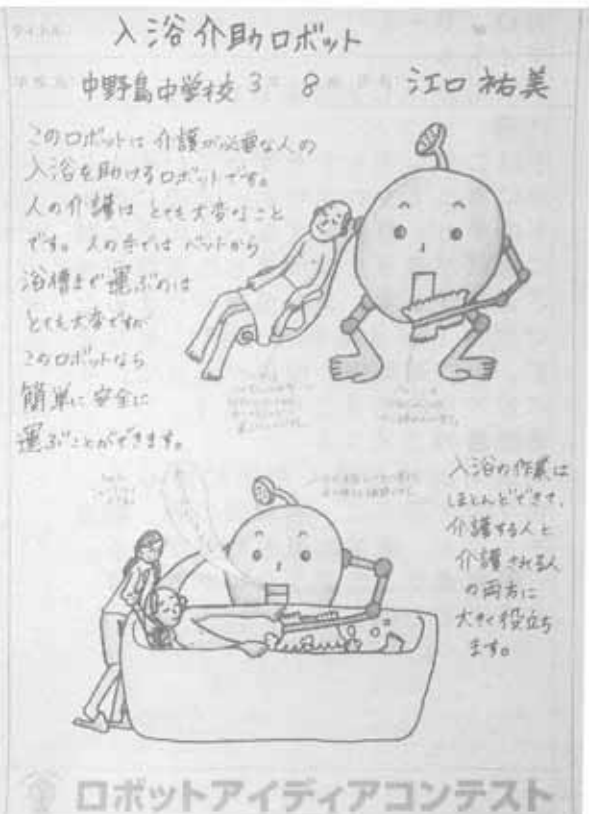 タイトル
入浴介助ロボット
中野島中学校 3年 8 組 氏名 江口祐美
このロボットは 介護が必要な人の
入浴を助けるロボットです。
人の介護は とても大変なこと
です。人の手では ベットから
浴槽まで運ぶのは
とても大変ですが
このロボットなら
簡単に安全に
運ぶことができます。
入浴の作業は
ほとんどできて、
介護する人と
介護される人
の両方に
大きく役立ち
ます。
ロボットアイディアコンテスト